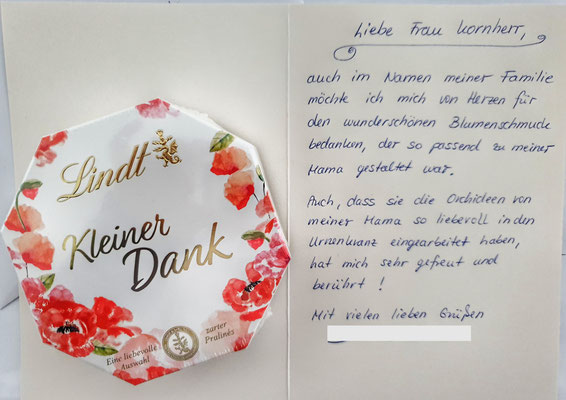 Lindt
Kleiner
Dank
Eine liebevolle
Auswahl
zarter
Pralinés
Liebe Frau Kornherr,
auch im Namen meiner Familie
möchte ich mich von Herzen für
den wunderschönen Blumenschmuck
bedanken, der so passend zu meiner
Mama gestaltet war.
Auch, dass sie die Orchideen von
meiner Mama so liebevoll in den
Urnenkranz eingearbeitet haben,
hat mich sehr gefreut und
berührt!
Mit vielen lieben Grüßen